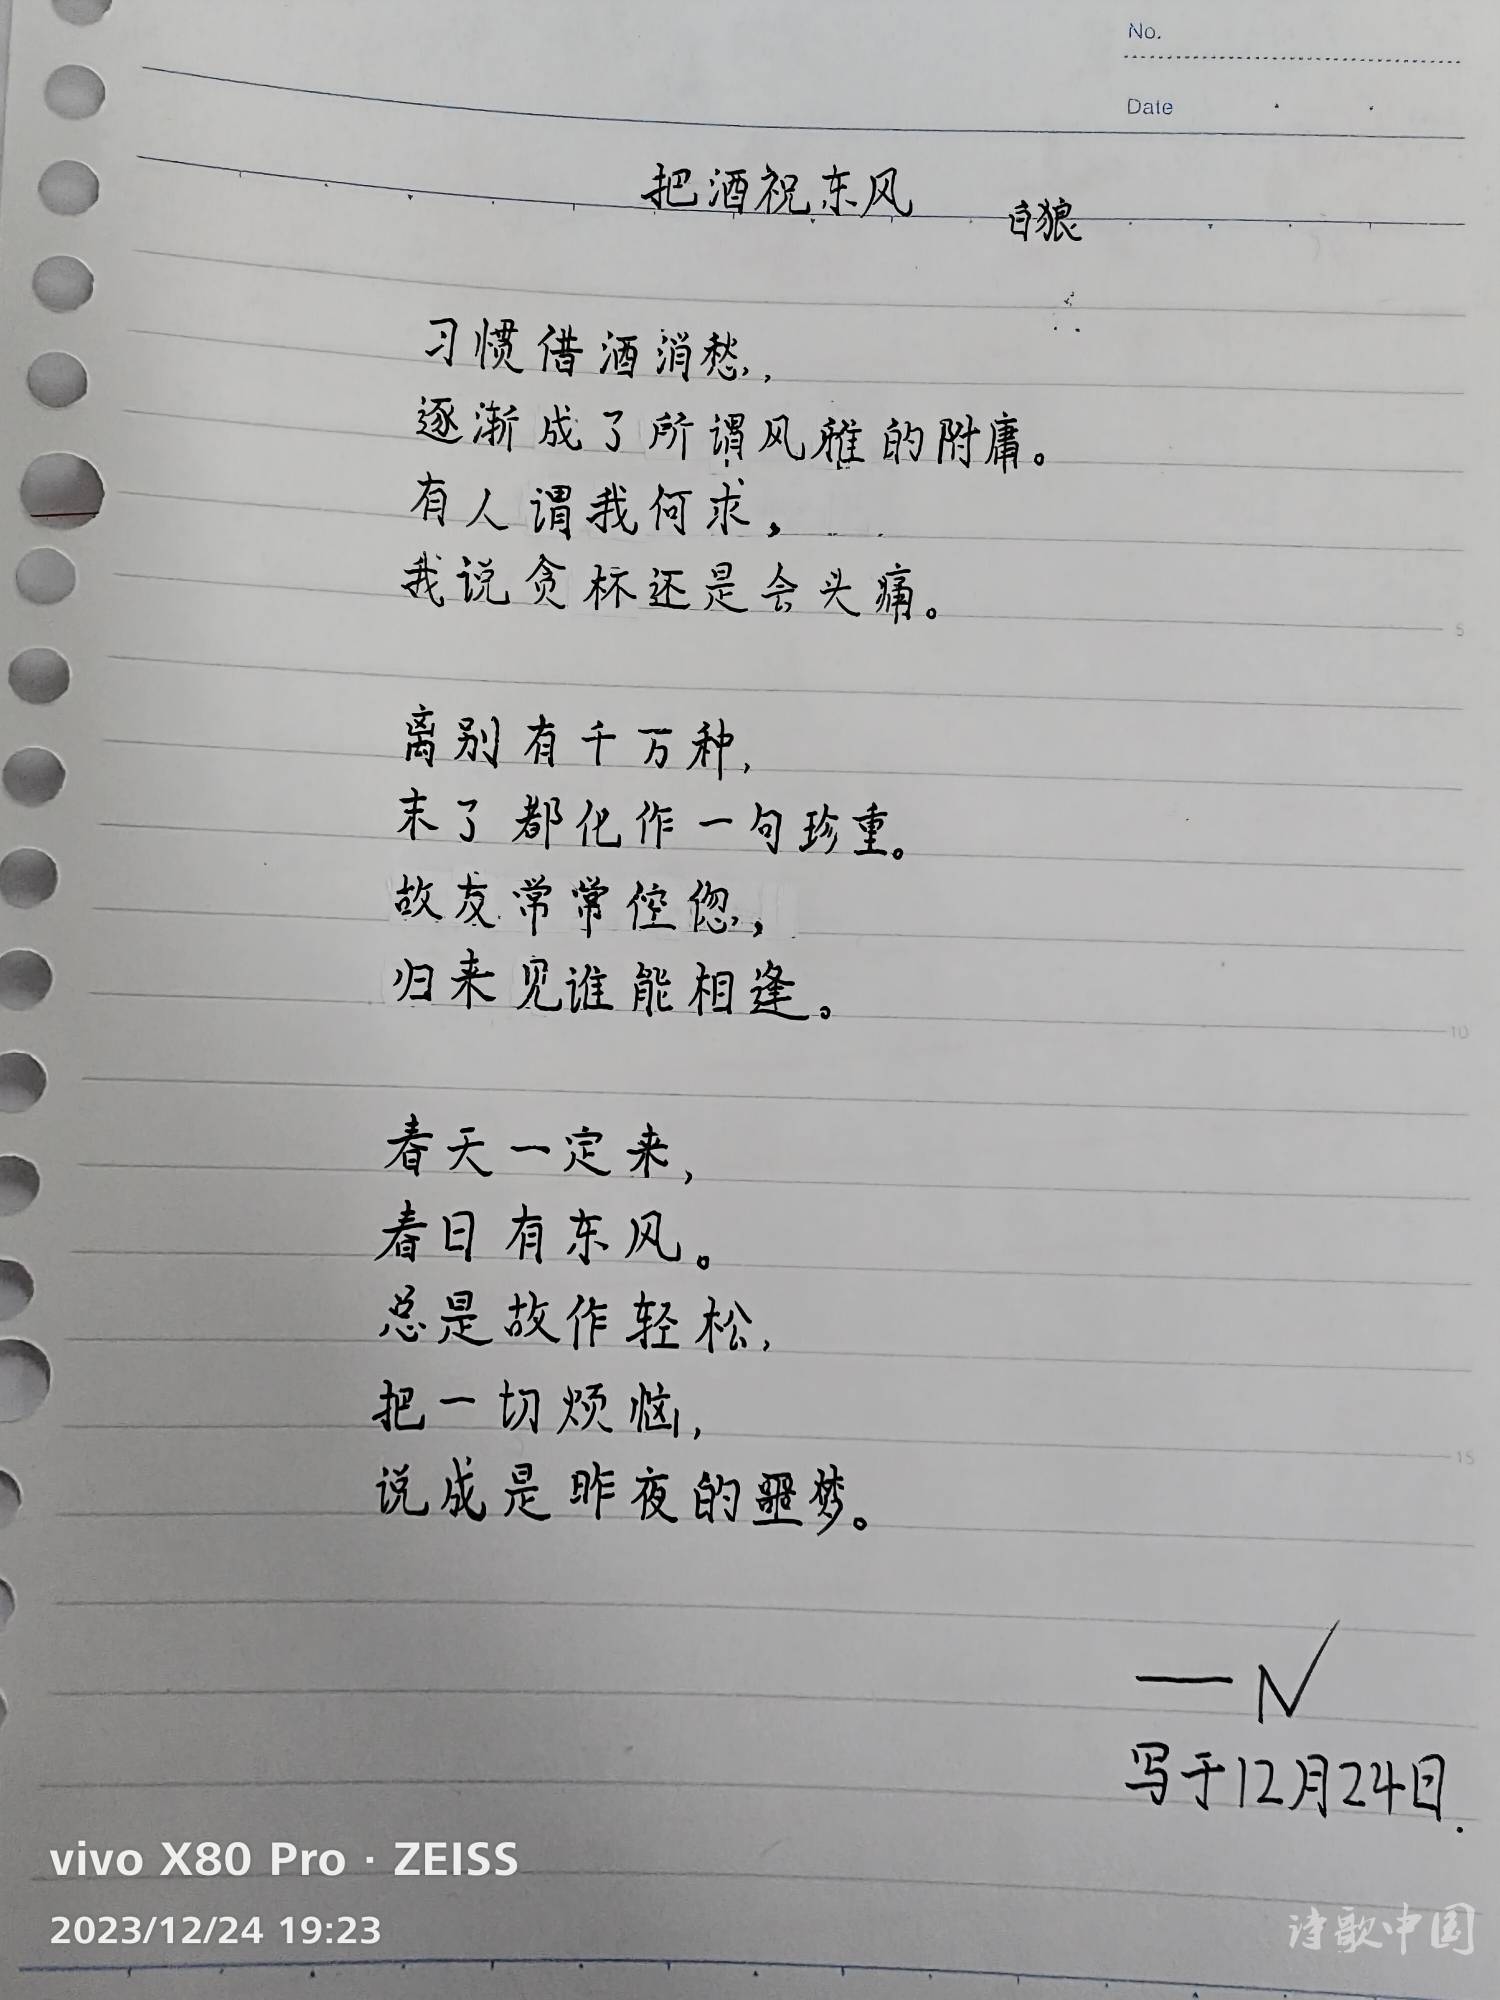 No.
Date
把酒祝东风 白狼
习惯借酒消愁,
逐渐成了所谓风雅的附庸。
有人谓我何求,
我说贪杯还是会头痛。
离别有千万种,
末了都化作一句珍重。
故友常常倥偬,
归来见谁能相逢。
春天一定来,
春日有东风。
总是故作轻松,
把一切烦恼,
说成是昨夜的噩梦。
—N
写于12月24日.
5
10
15
vivo X80 Pro · ZEISS
2023/12/24 19:23
诗歌中国